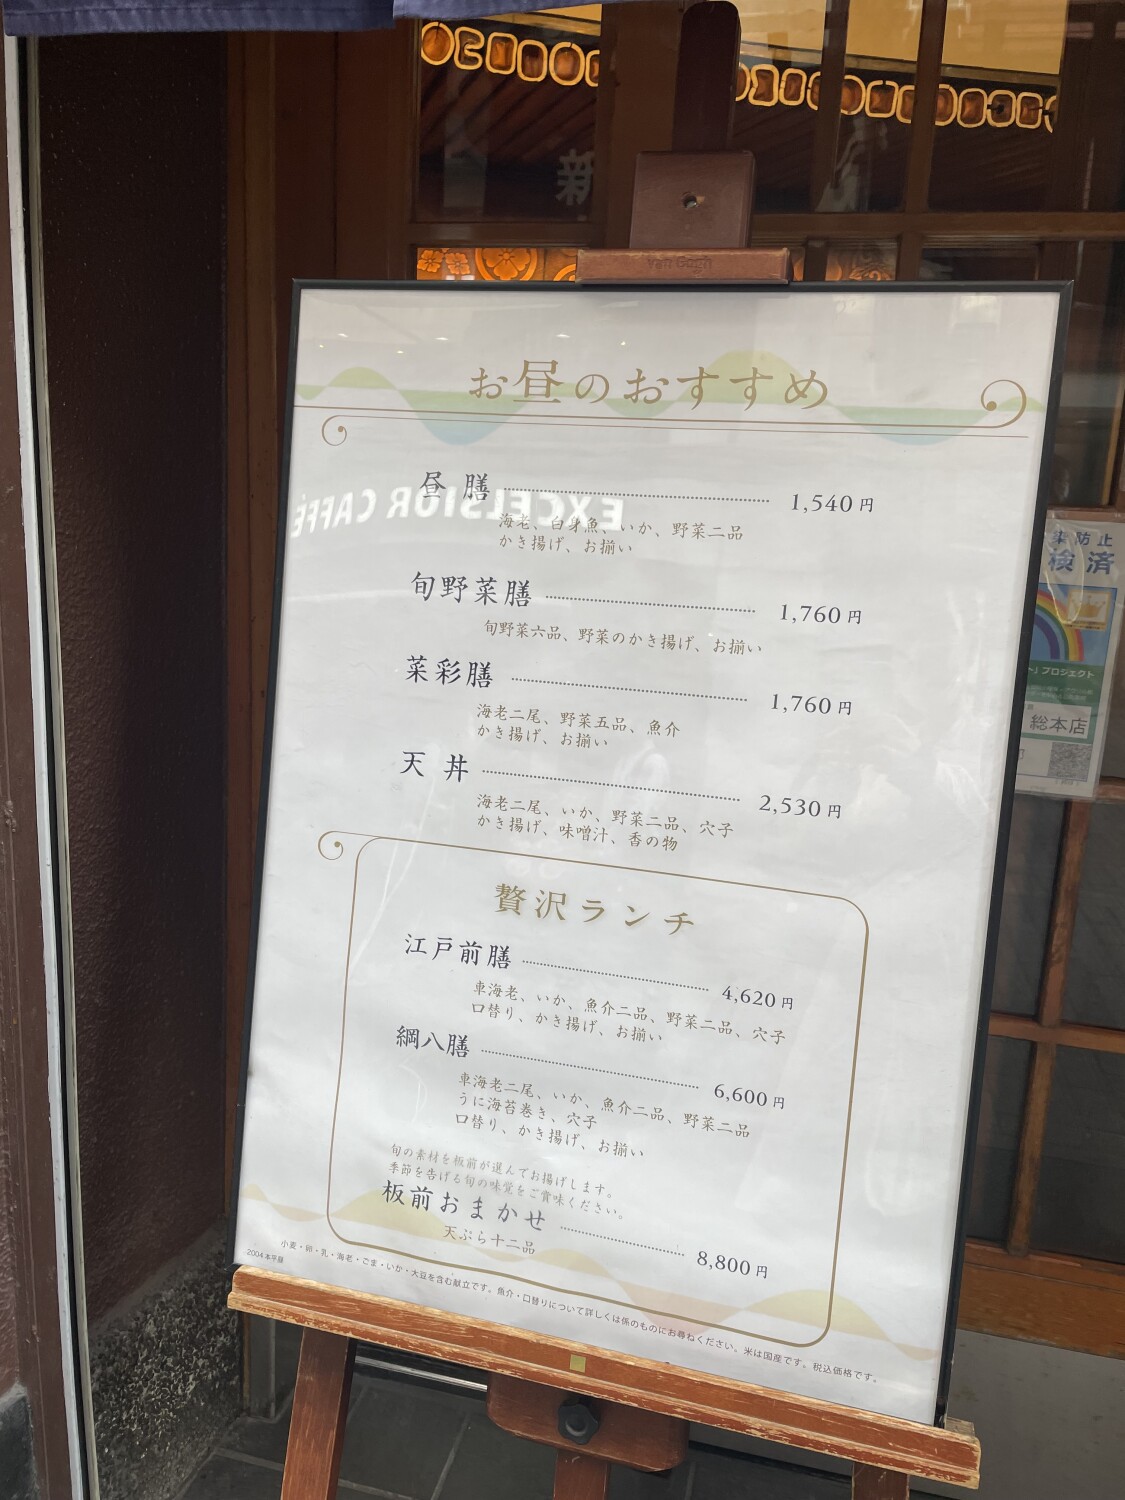 新
Van Gogh
お昼のおすすめ
EXCELSIOR CAFFÉ
昼膳 1,540円
海老、白身魚、いか、野菜二品
かき揚げ、お揃い
旬野菜膳 1,760円
旬野菜六品、野菜のかき揚げ、お揃い
菜彩膳 1,760円
海老二尾、野菜五品、魚介
かき揚げ、お揃い
天丼 2,530円
海老二尾、いか、野菜二品、穴子
かき揚げ、味噌汁、香の物
贅沢ランチ
江戸前膳 4,620円
車海老、いか、魚介二品、野菜二品、穴子
口替り、かき揚げ、お揃い
綱八膳 6,600円
車海老二尾、いか、魚介二品、野菜二品
うに海苔巻き、穴子
口替り、かき揚げ、お揃い
旬の素材を板前が選んでお揚げします。
季節を告げる旬の味覚をご賞味ください。
板前おまかせ 8,800円
天ぷら十二品
小麦・卵・乳・海老・ごま・いか・大豆を含む献立です。魚介・口替りについて詳しくは係のものにお尋ねください。米は国産です。税込価格です。
2004本平昼
防止
検済
プロジェクト
総本店